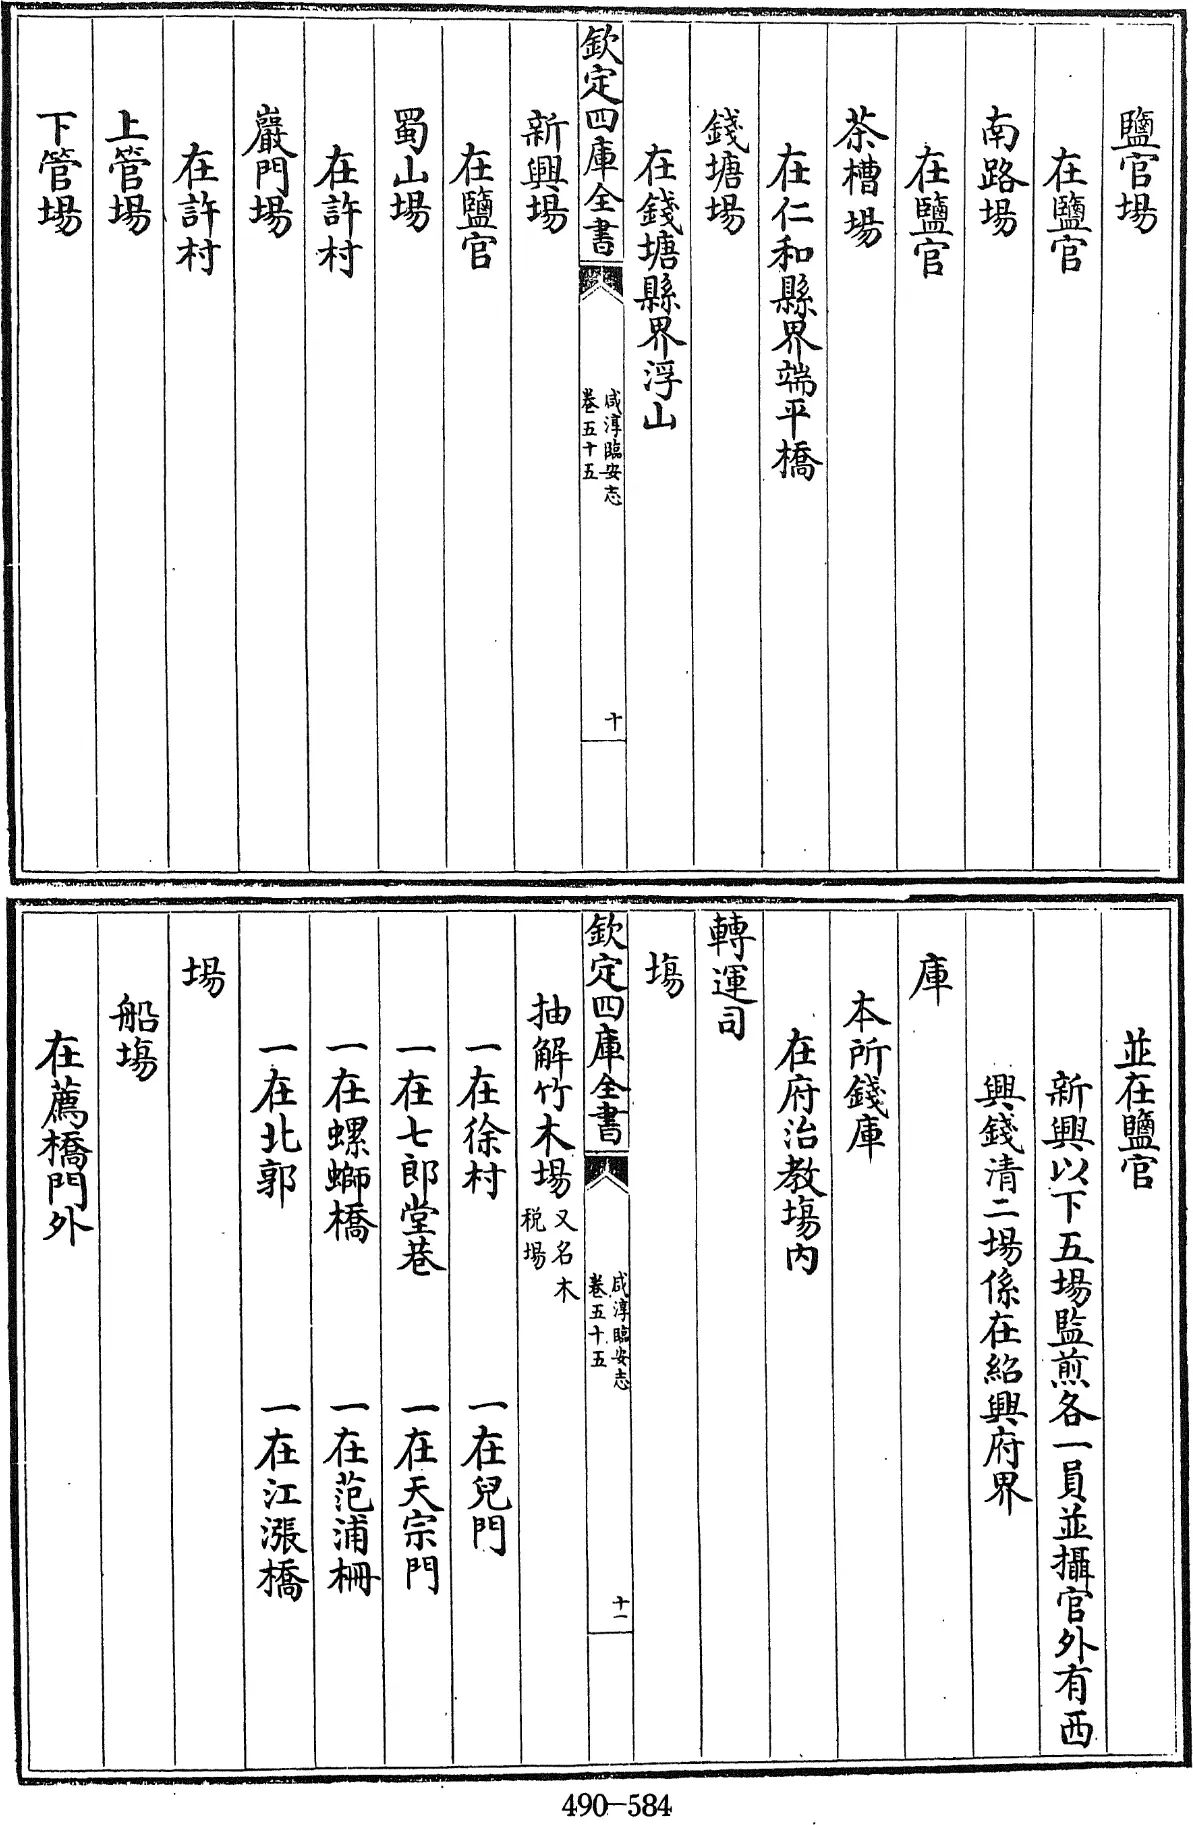 鹽官場
在鹽官
南路場
在鹽官
茶槽場
在仁和縣界端平橋
錢塘場
在錢塘縣界浮山
欽定四庫全書
咸淳臨安志
卷五十五
十
新興場
在鹽官
蜀山場
在許村
巖門場
在許村
上管場
下管場
並在鹽官
新興以下五場監煎各一員並攝官外有西
興錢清二場係在紹興府界
庫
本所錢庫
在府治教塲內
轉運司
塲
欽定四庫全書
咸淳臨安志
卷五十五
十一
抽解竹木場又名木
稅場
一在徐村 一在兒門
一在七郎堂巷 一在天宗門
一在螺螄橋 一在范浦柵
一在北郭 一在江漲橋
場
船塲
在薦橋門外
490-584